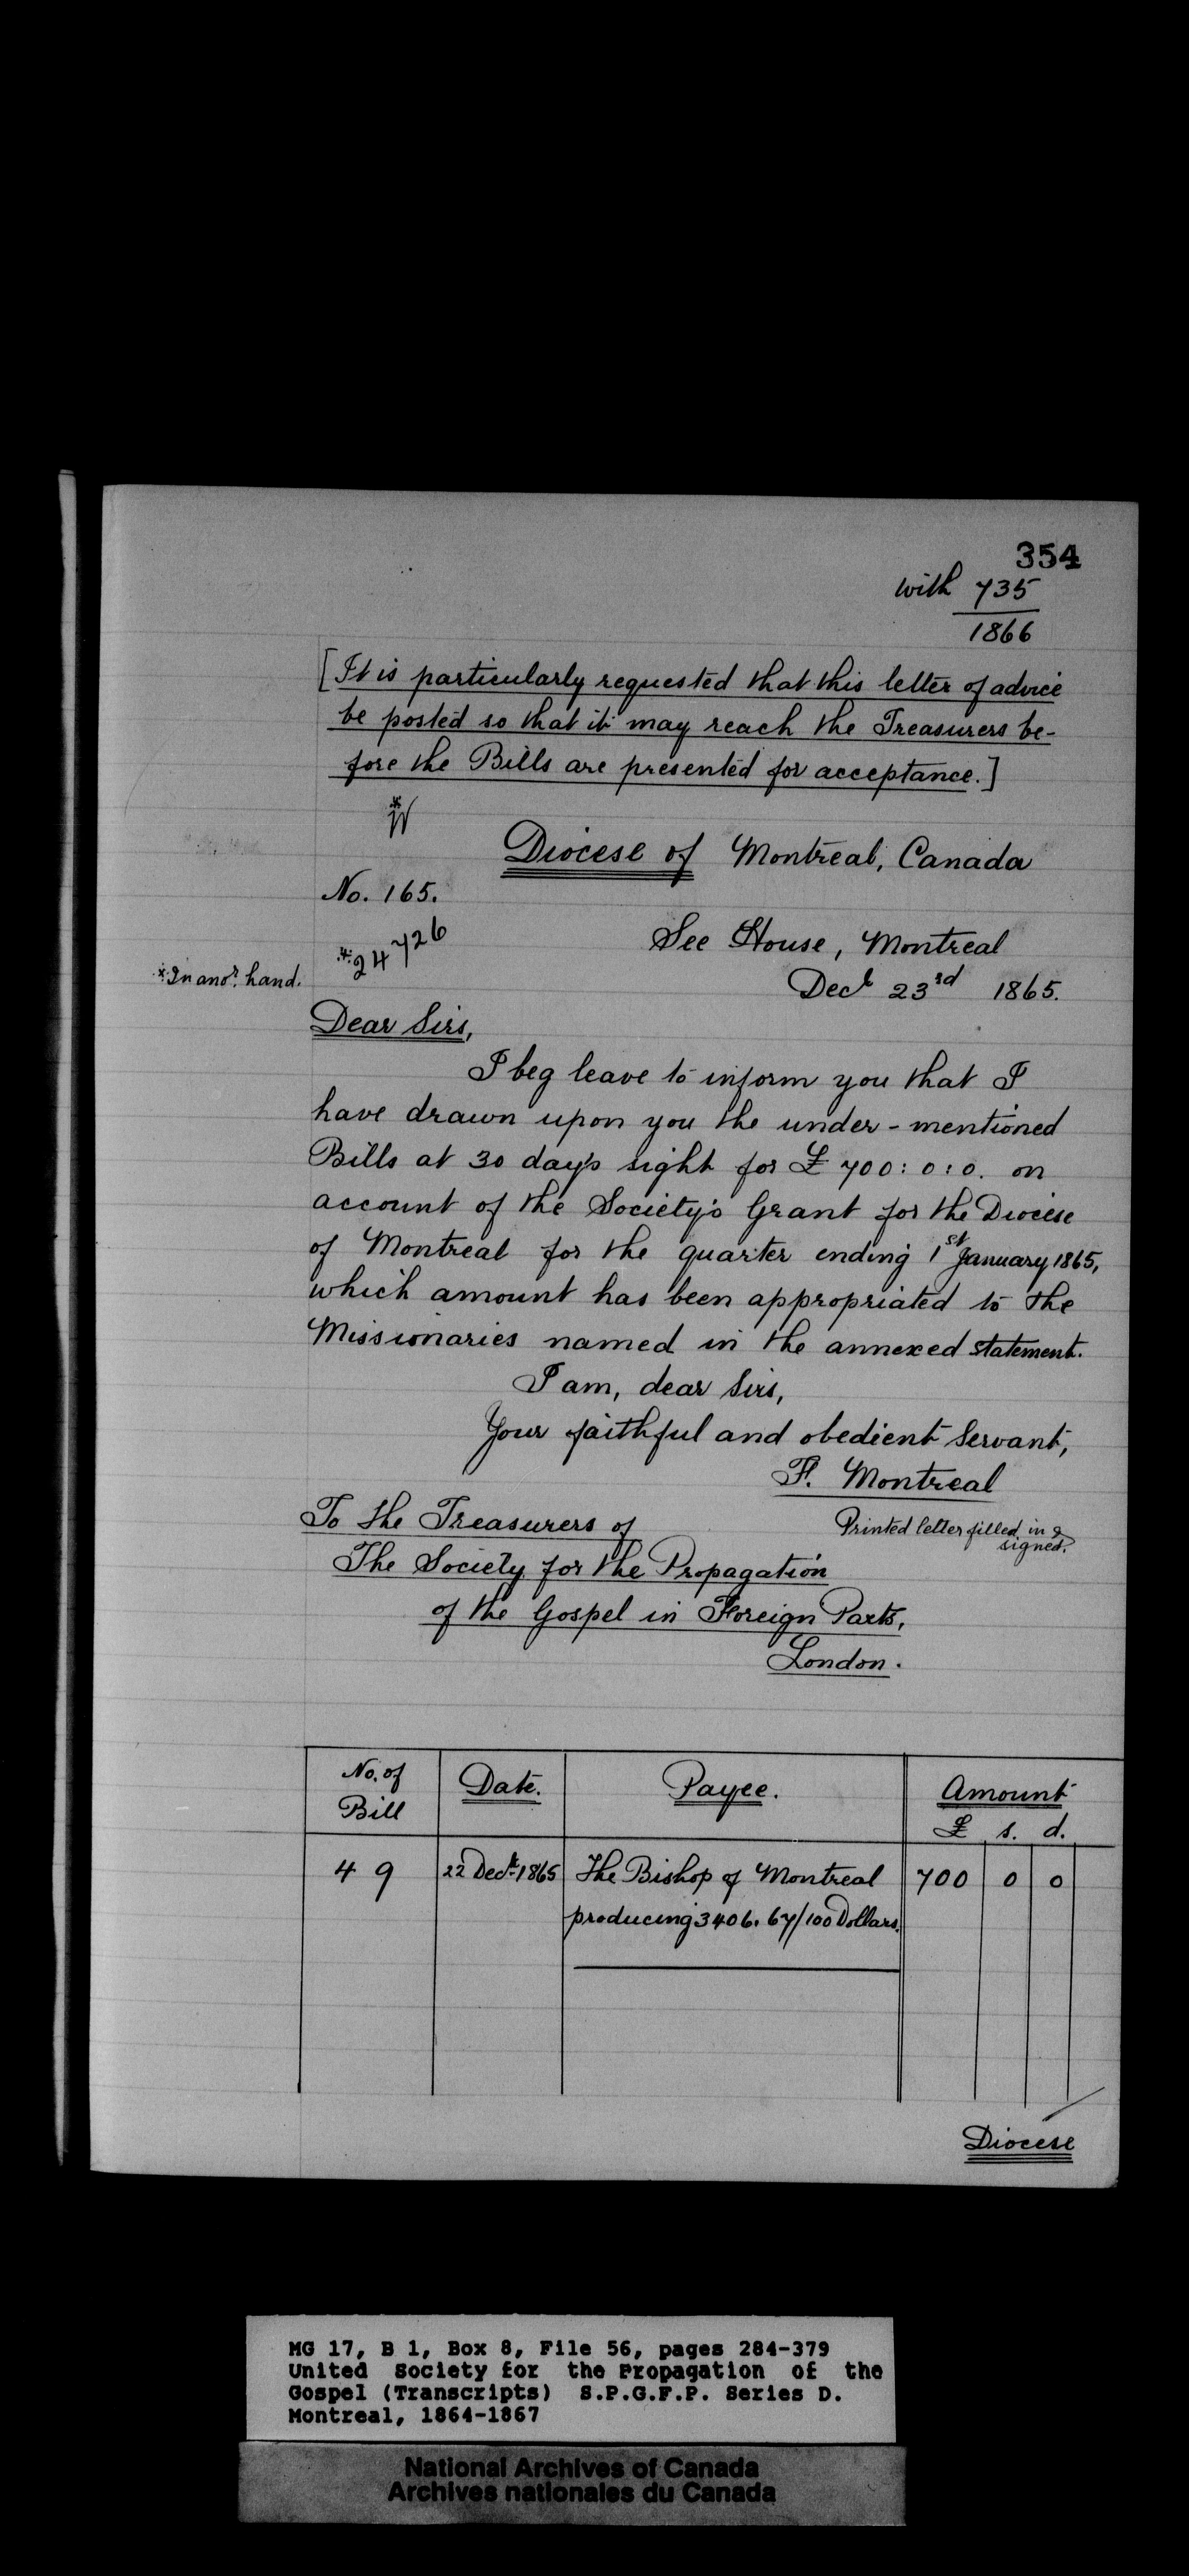 354
with 735
1866
[It is particularly requested that this letter of advice
be posted so that it may reach the Treasurers be-
fore the Bills are presented for acceptance.]
*
W
Diocese of Montreal, Canada
No. 165.
* 24726
See House, Montreal
* In anor. hand.
Decr 23rd 1865.
Dear Sirs,
I beg leave to inform you that I
have drawn upon you the under-mentioned
Bills at 30 day's sight for £ 700:0:0. on
account of the Society's Grant for the Diocese
of Montreal for the quarter ending 1st January 1865,
which amount has been appropriated to the
Missionaries named in the annexed statement.
I am, dear Sirs,
Your faithful and obedient Servant,
F. Montreal
To the Treasurers of
Printed letter filled in &
signed.
The Society for the Propagation
of the Gospel in Foreign Parts,
London.
No. of Bill Date. Payee. Amount
£ s. d.
49 22 Decr. 1865 The Bishop of Montreal 700 0 0
producing 3406.67/100 Dollars.
Diocese
MG 17, B 1, Box 8, File 56, pages 284-379
United Society for the Propagation of the
Gospel (Transcripts) S.P.G.F.P. Series D.
Montreal, 1864-1867
National Archives of Canada
Archives nationales du Canada